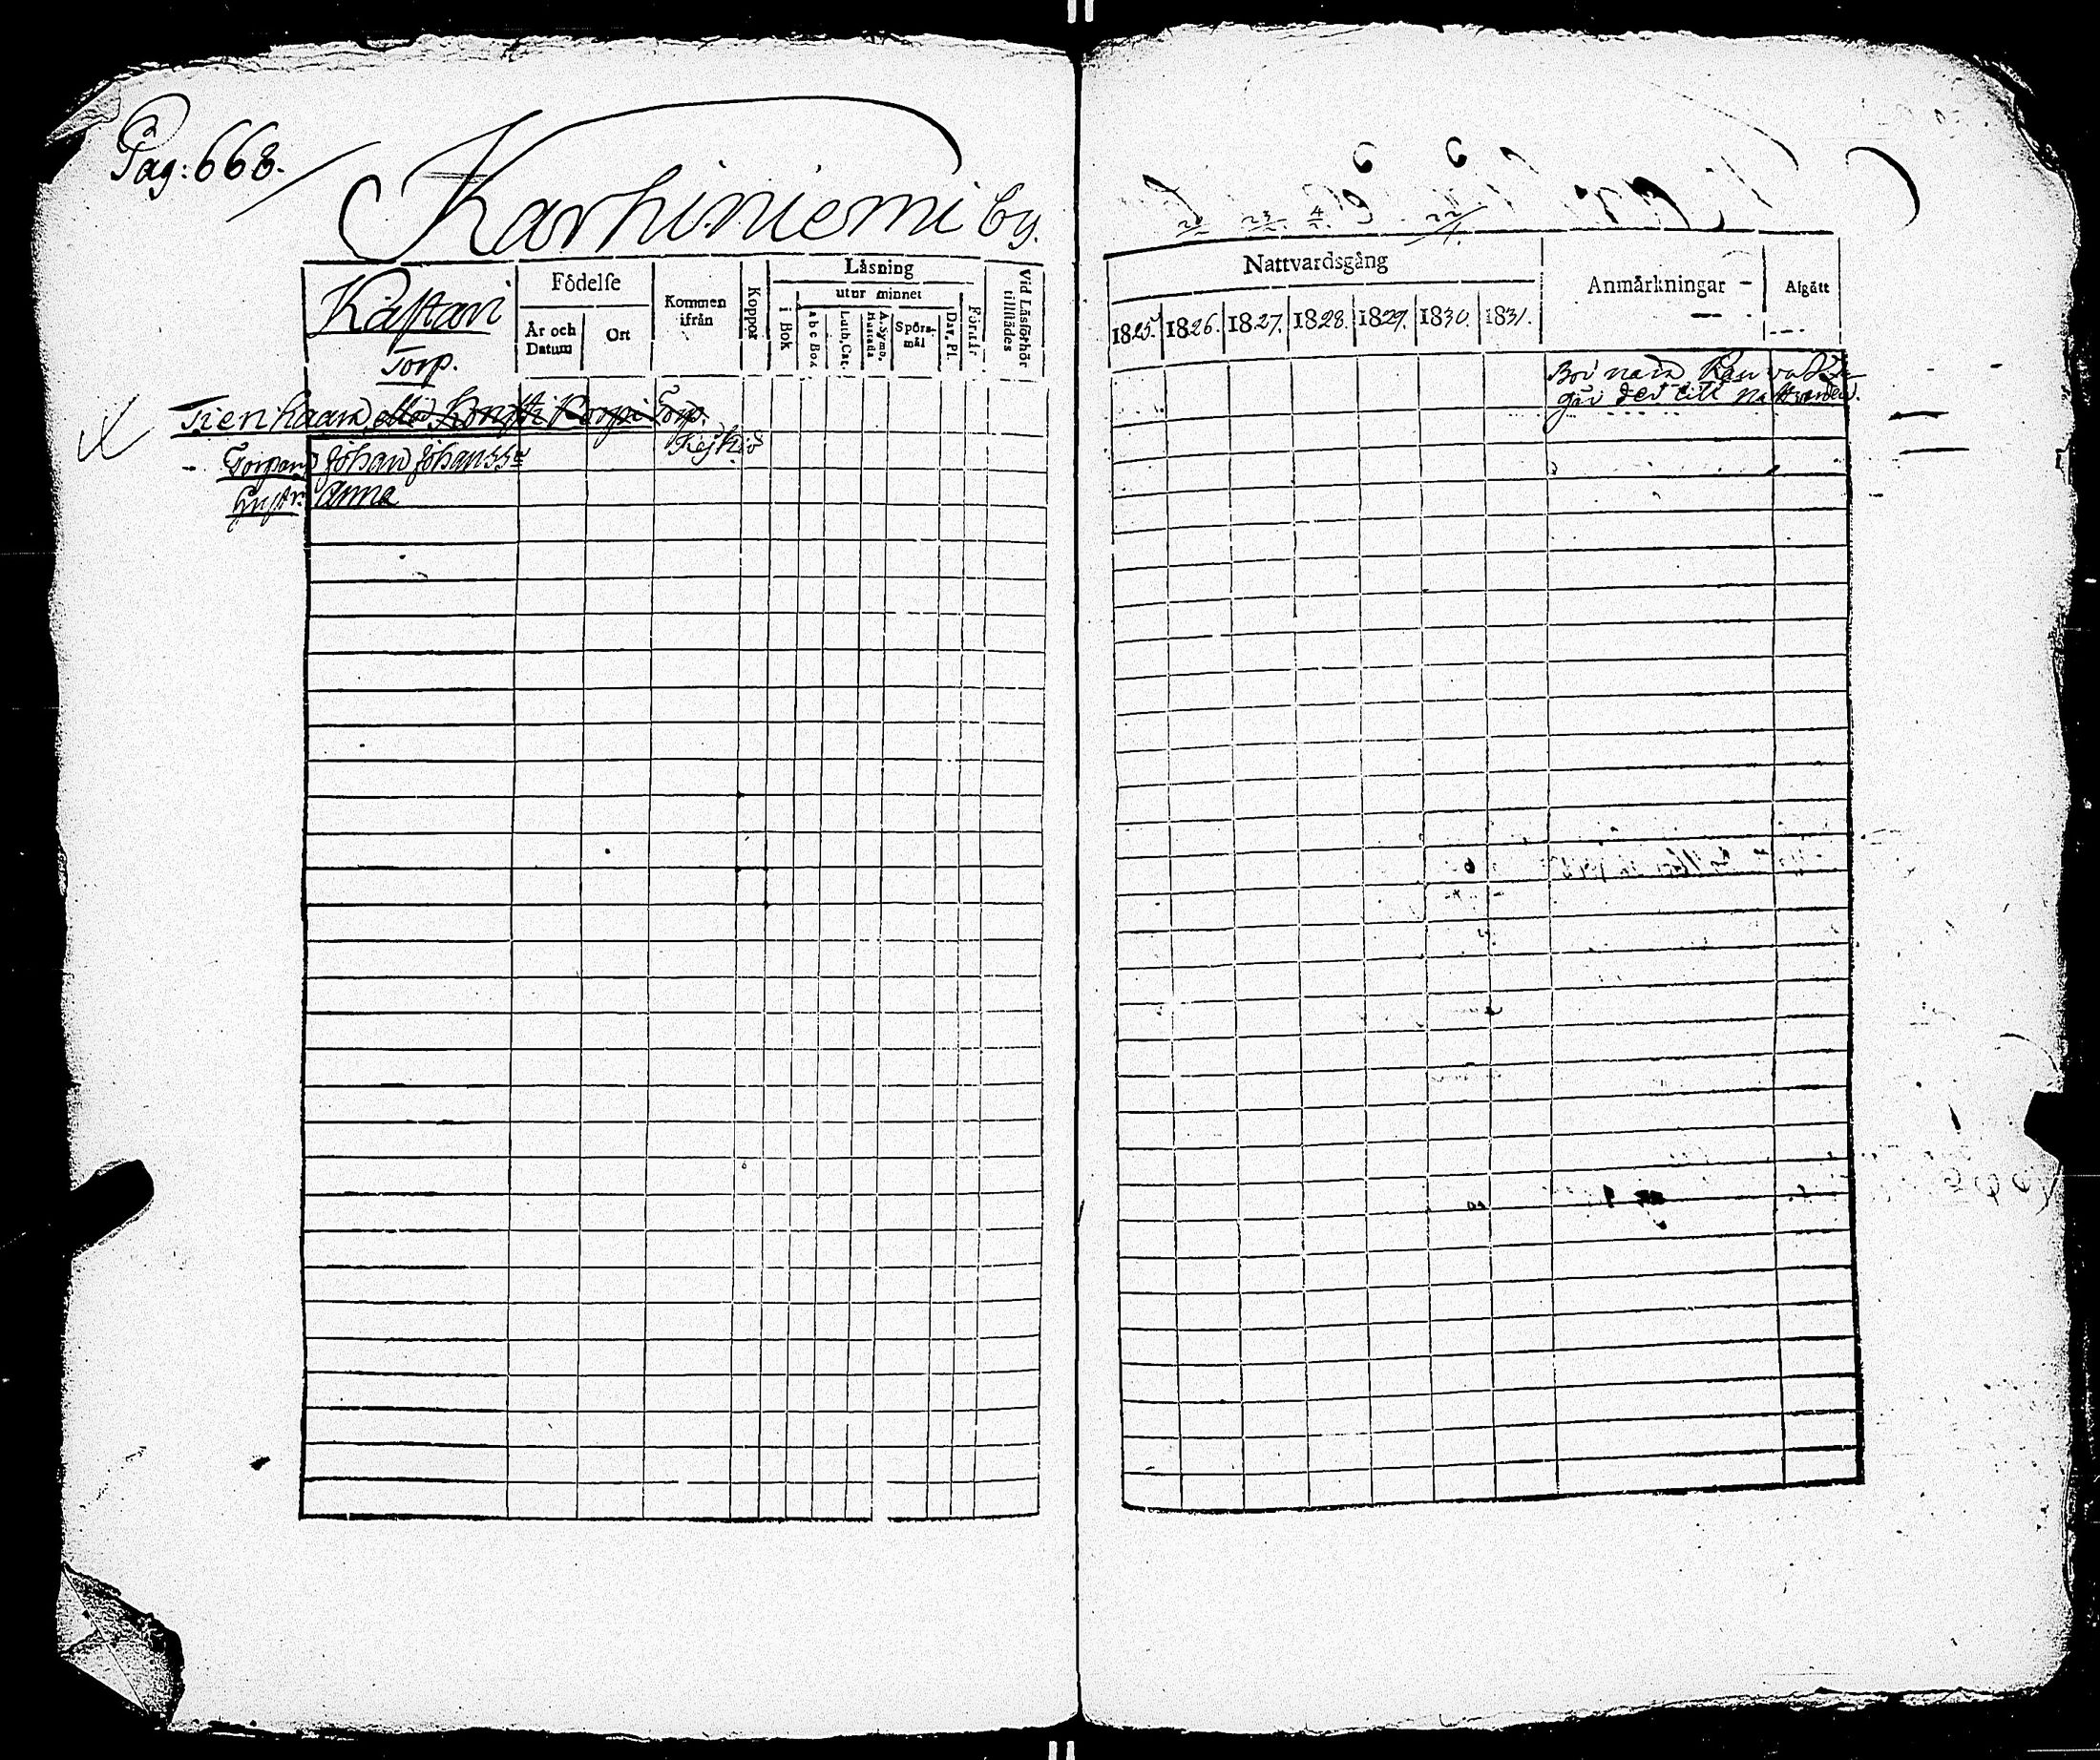 Pag: 668.
Karhiniemi by.
Kåstari
Torp.
Födelse
År och Datum
Ort
Kommen ifrån
Koppor
Läsning
i Bok
utur minnet
a b c Bok
Luth. Cat.
A. Symb. Hustafla
Spörsmål
Dav. Ps.
Förstår
Vid Läsförhör tillstädes
Tienhaara eller Torp.
Keikiö
Torpare Johan Johanss:n
Hustr: Anna
Nattvardsgång
1825. 1826. 1827. 1828. 1829. 1830. 1831.
Anmärkningar
Afgått
Bor nära
går der till nattvarden.